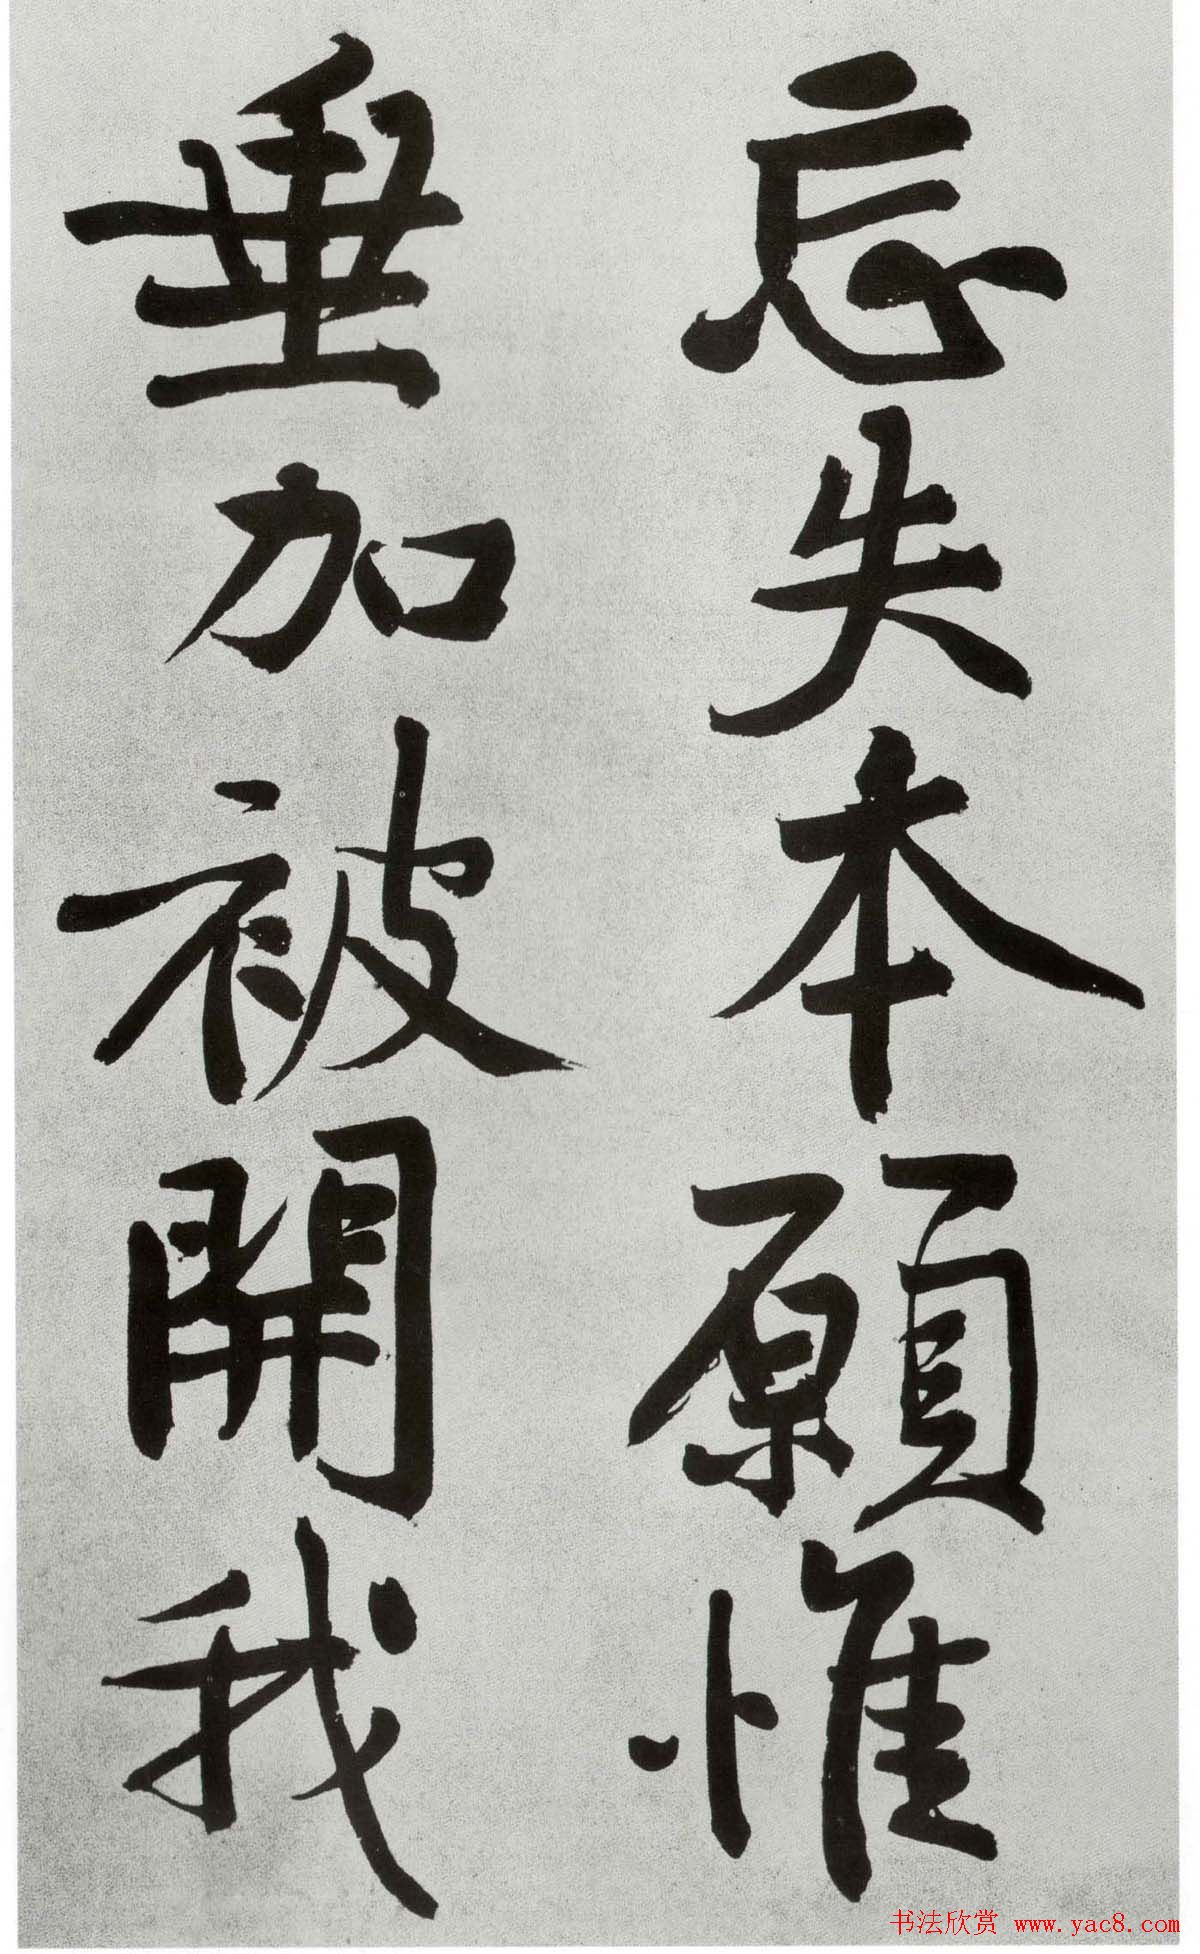 忘失本願惟
垂加被開我
书法欣赏 www.yac8.com